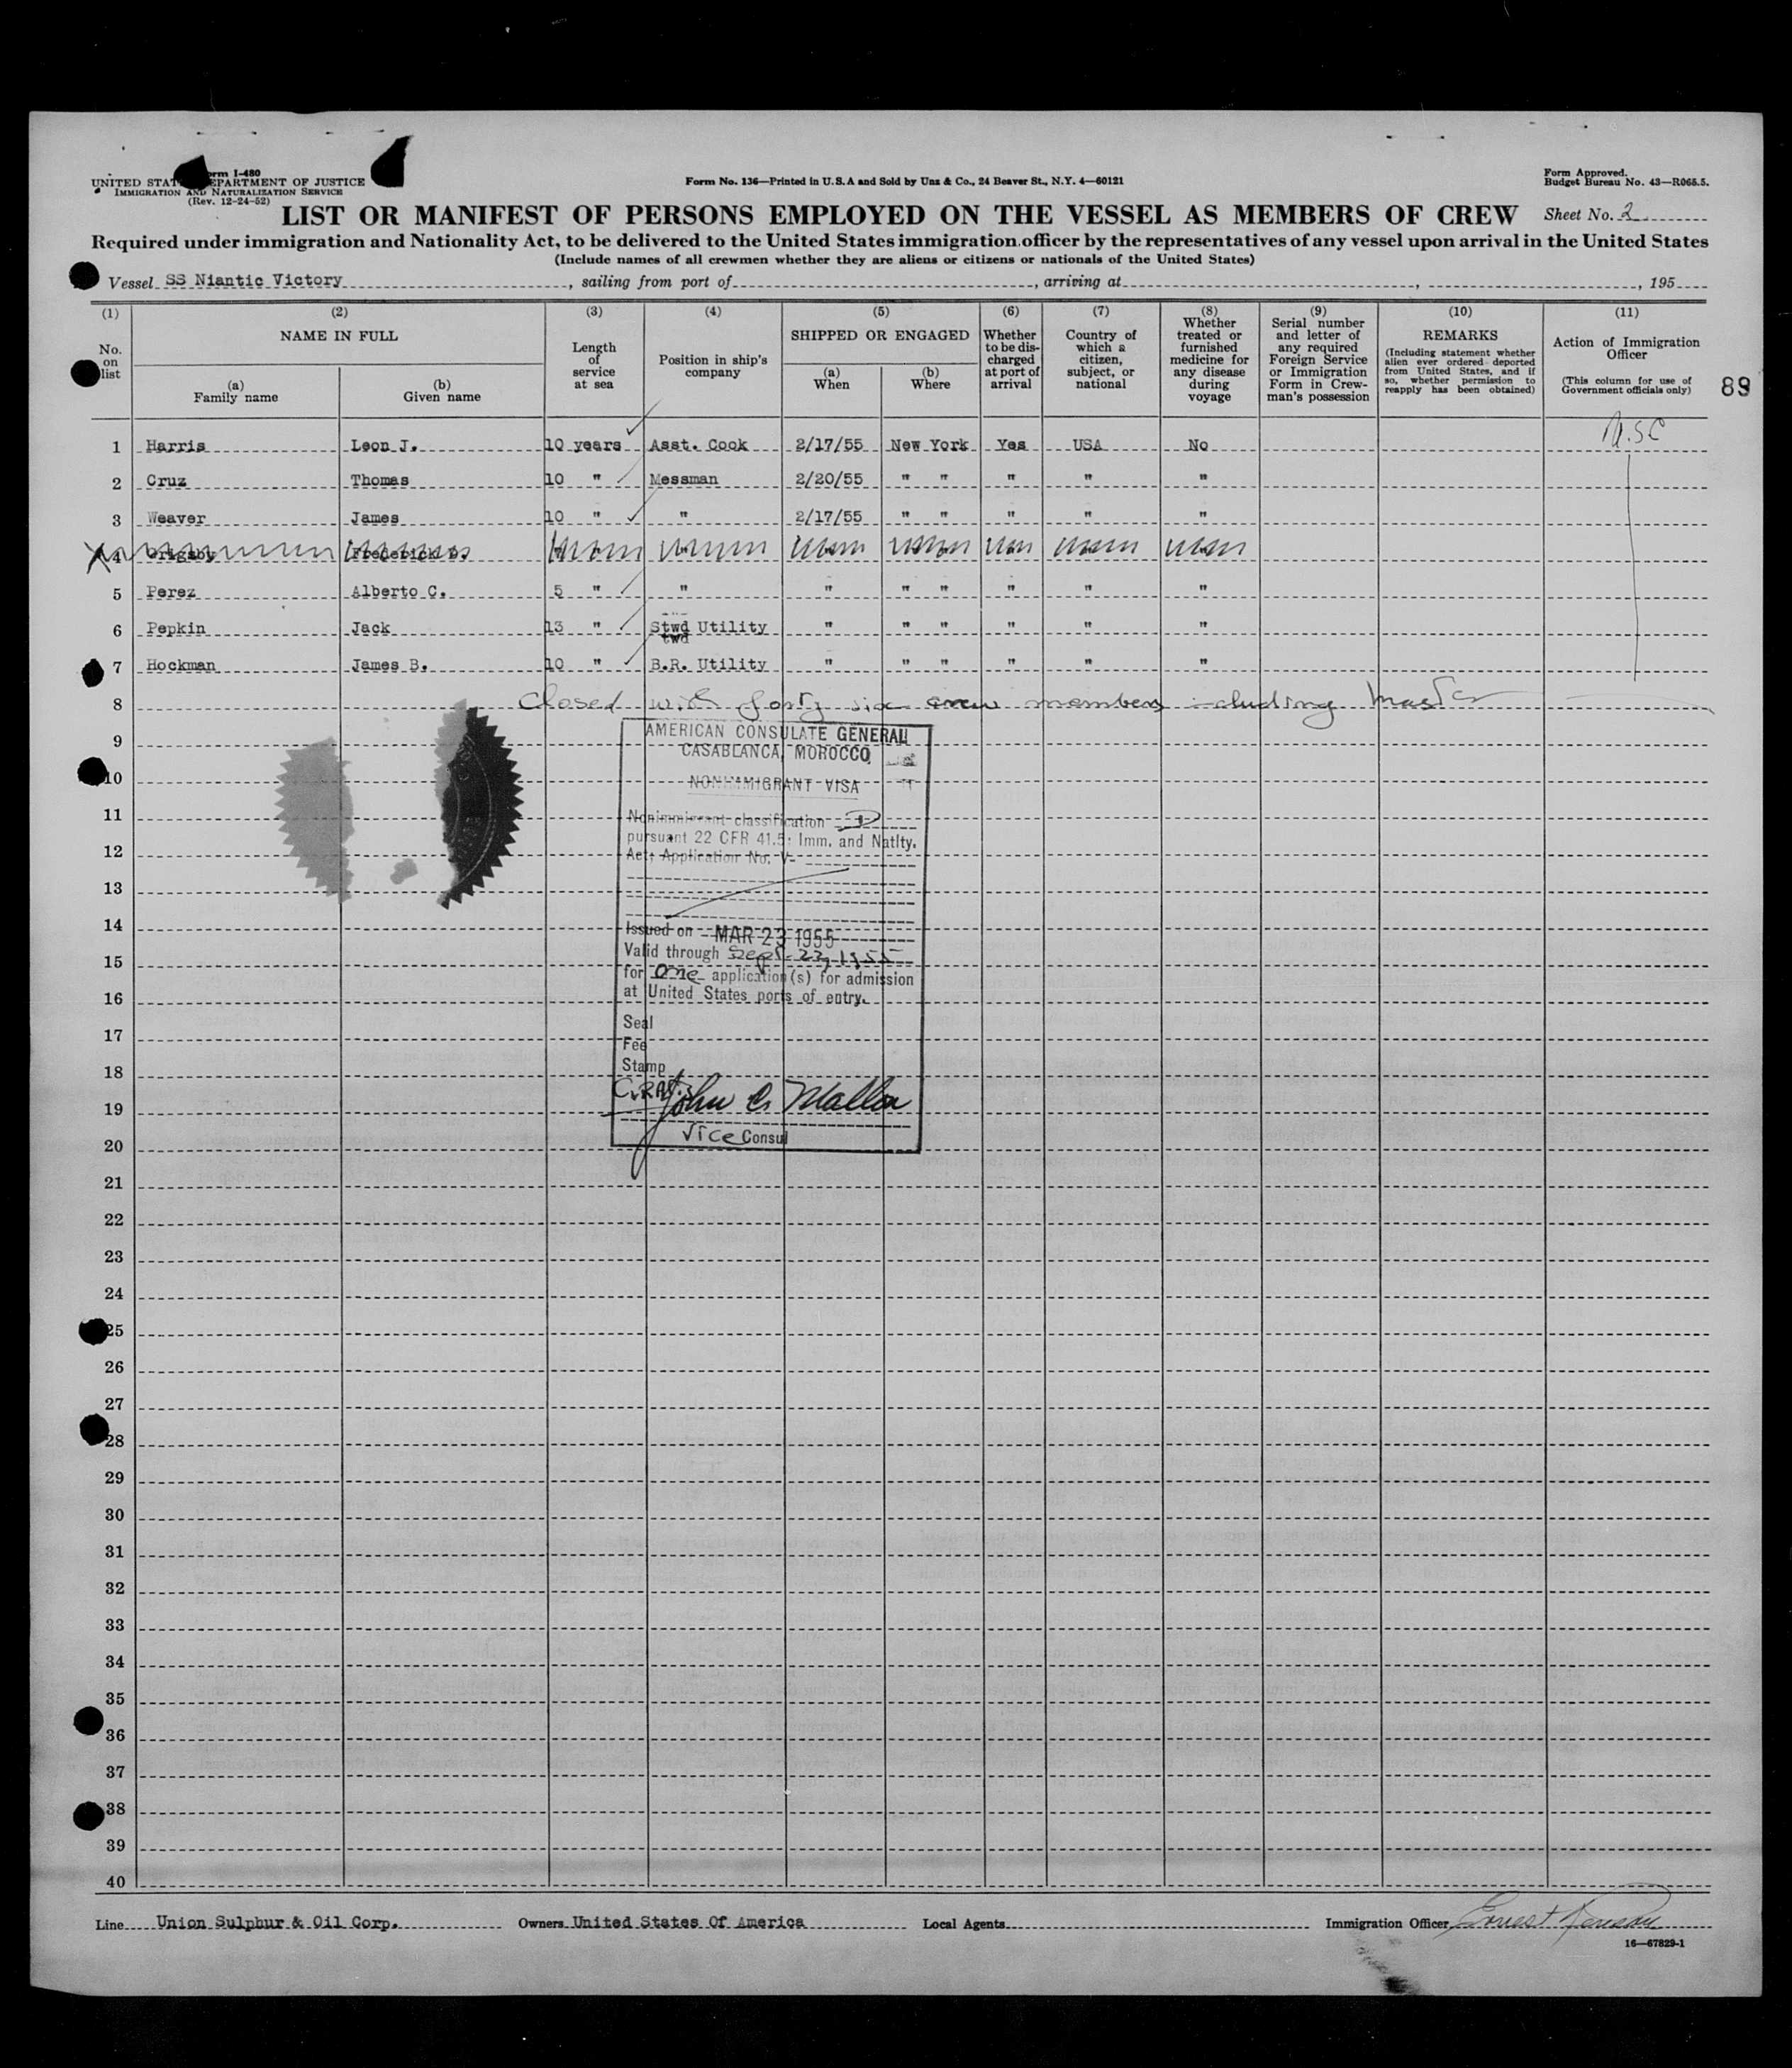 Form I-480
UNITED STATES DEPARTMENT OF JUSTICE
IMMIGRATION AND NATURALIZATION SERVICE
(Rev. 12-24-52)
Form No. 136—Printed in U.S.A and Sold by Unz & Co., 24 Beaver St., N.Y. 4—60121
Form Approved.
Budget Bureau No. 43—R065.5.
LIST OR MANIFEST OF PERSONS EMPLOYED ON THE VESSEL AS MEMBERS OF CREW
Sheet No. 2
Required under immigration and Nationality Act, to be delivered to the United States immigration officer by the representatives of any vessel upon arrival in the United States
(Include names of all crewmen whether they are aliens or citizens or nationals of the United States)
Vessel SS Niantic Victory, sailing from port of, arriving at, , 195
(1) No. on list
(2) NAME IN FULL
(a) Family name
(b) Given name
(3) Length of service at sea
(4) Position in ship's company
(5) SHIPPED OR ENGAGED
(a) When
(b) Where
(6) Whether to be discharged at port of arrival
(7) Country of which a citizen, subject, or national
(8) Whether treated or furnished medicine for any disease during voyage
(9) Serial number and letter of any required Foreign Service or Immigration Form in Crewman's possession
(10) REMARKS (Including statement whether alien ever ordered deported from United States, and if so, whether permission to reapply has been obtained)
(11) Action of Immigration Officer (This column for use of Government officials only)
89
1 Harris Leon J. 10 years Asst. Cook 2/17/55 New York Yes USA No
2 Cruz Thomas 10 " Messman 2/20/55 " " " " "
3 Weaver James 10 " " 2/17/55 " " " " "
4 Grigsby Frederick
5 Perez Alberto C. 5 " " " " " " " "
6 Pepkin Jack 13 " Stwd Utility " " " " " "
twd
7 Hockman James B. 10 " B.R. Utility " " " " " "
8 Closed with forty six crew members including Master
9
10
11
12
13
14
15
16
17
18
19
20
21
22
23
24
25
26
27
28
29
30
31
32
33
34
35
36
37
38
39
40
AMERICAN CONSULATE GENERAL
CASABLANCA, MOROCCO
NONIMMIGRANT VISA
Nonimmigrant classification D
pursuant 22 CFR 41.5; Imm. and Natlty.
Act; Application No. V-
Issued on MAR 23 1955
Valid through Sept. 23, 1955
for One application(s) for admission
at United States ports of entry.
Seal
Fee
Stamp
John C. Mallon
Vice Consul
Line Union Sulphur & Oil Corp. Owners United States Of America Local Agents Immigration Officer Ernest
16—67829-1